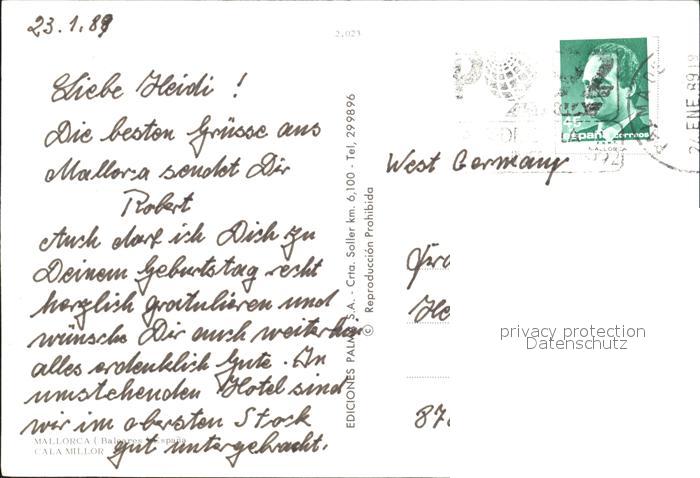 23.1.89
2,023
Liebe Heidi !
Die besten Grüsse aus
Mallorca sendet Dir
Robert
Auch darf ich Dich zu
Deinem Geburtstag recht
herzlich gratulieren und
wünsche Dir auch weiterhin
alles erdenklich Gute. Im
umstehenden Hotel sind
wir im obersten Stock
gut untergebracht.
MALLORCA ( Baleares ) España
CALA MILLOR
EDICIONES PALMA, S.A. - Crta. Soller km. 6,100 - Tel, 299896
© Reproducción Prohibida
45
españa correos
MALLORCA
24 ENE 89 18
West Germany
Fra
He
privacy protection
Datenschutz
87